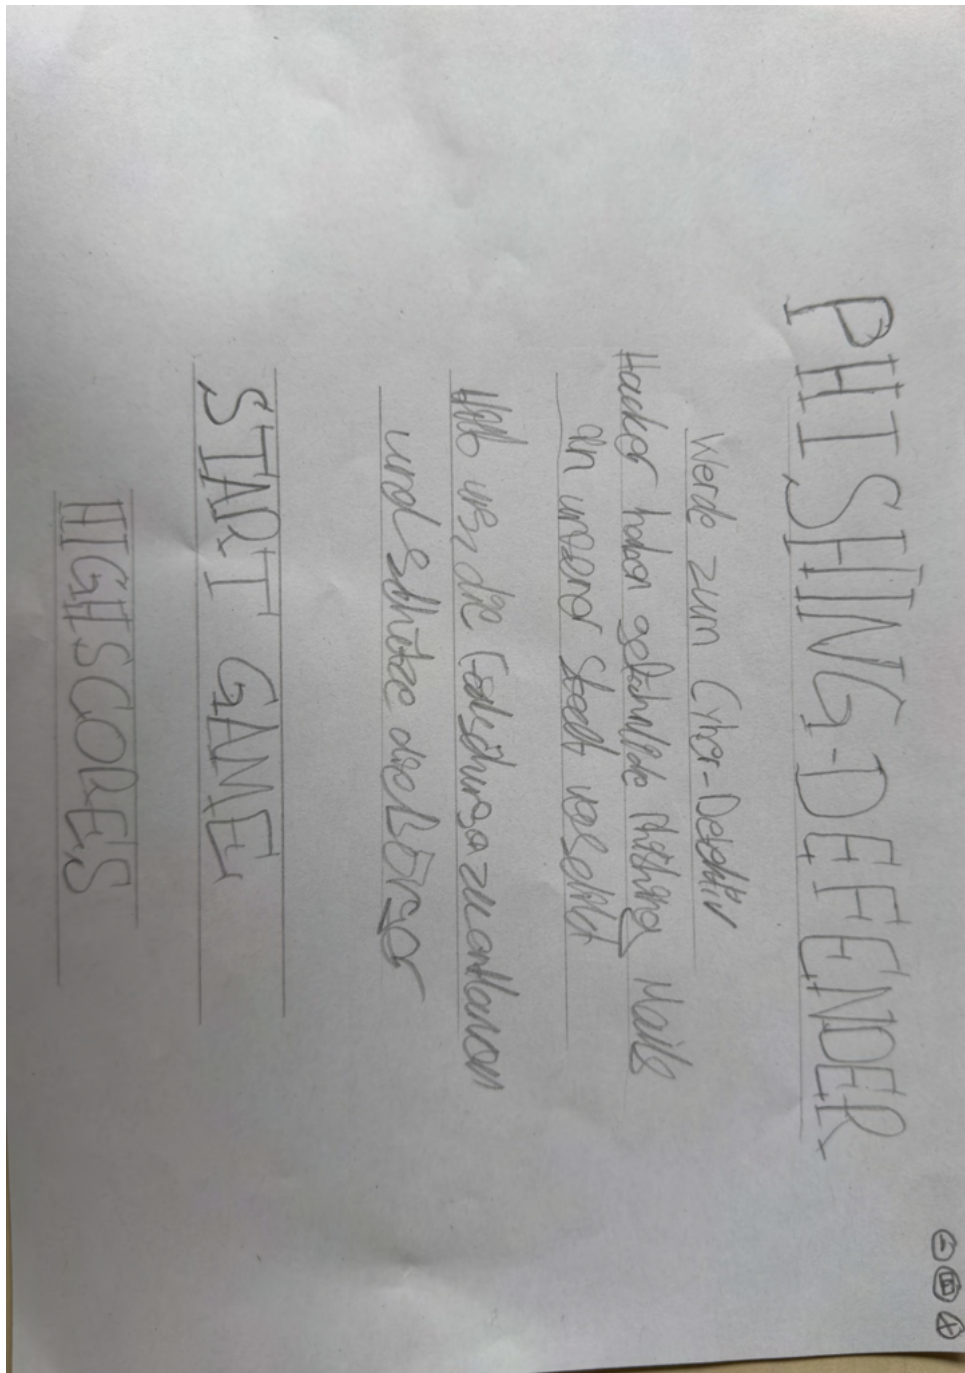 PHISHING-DEFENDER
Werde zum Cyber-Detektiv
Hacker haben gefährliche Phishing Mails
in unserer Stadt verschickt
Hilf uns, die zu
und schütze die Bürger
START GAME
HIGHSCORES